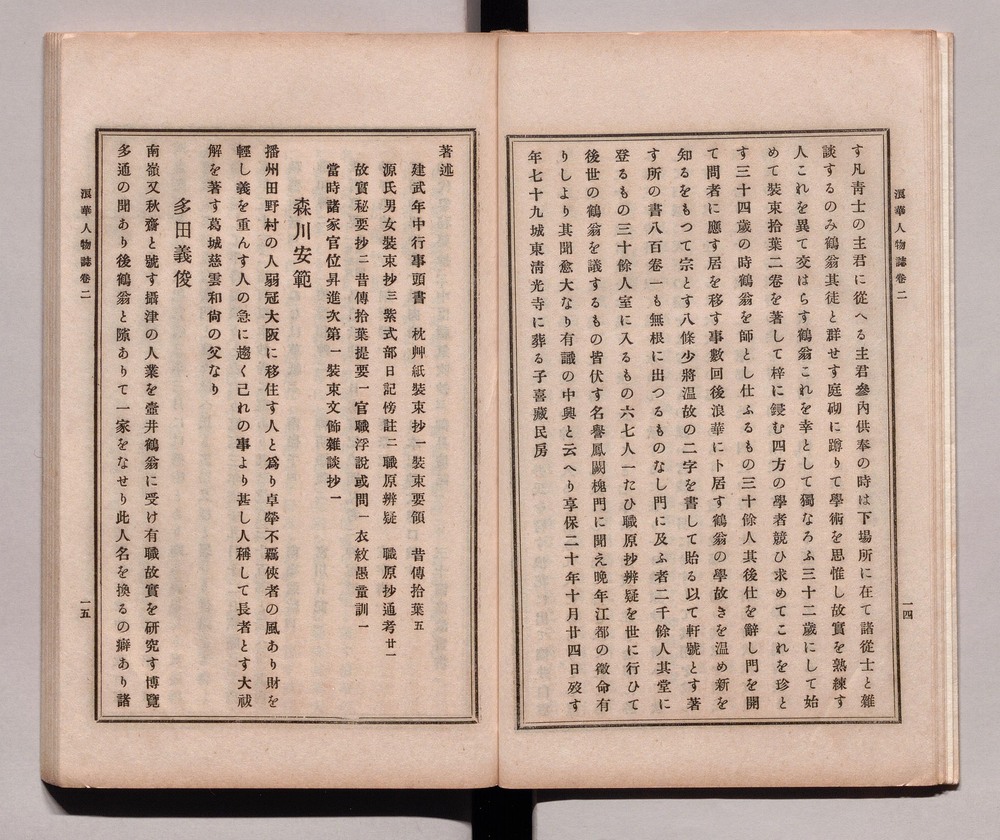 浪華人物誌卷二
一四
す凡靑士の主君に從へる主君參內供奉の時は下塲所に在て諸從士と雜
談するのみ鶴翁其徒と群せす庭砌に蹲りて學術を思惟し故實を熟練す
人これを異て交はらす鶴翁これを幸として獨なろふ三十二歲にして始
めて裝束拾葉二卷を著して梓に鋟む四方の學者競ひ求めてこれを珍と
す三十四歲の時鶴翁を師とし仕ふるもの三十餘人其後仕を辭し門を開
て問者に應す居を移す事數回後浪華に卜居す鶴翁の學故きを温め新を
知るをもつて宗とす八條少將温故の二字を書して貽る以て軒號とす著
す所の書八百卷一も無根に出つるものなし門に及ふ者二千餘人其堂に
登るもの三十餘人室に入るもの六七人一たひ職原抄辨疑を世に行ひて
後世の鶴翁を議するもの皆伏す名譽鳳闕槐門に聞え晚年江都の徵命有
りしより其聞愈大なり有識の中興と云へり享保二十年十月廿四日歿す
年七十九城東淸光寺に葬る子喜藏民房
著述
建武年中行事頭書　枕艸紙裝束抄一裝束要領　昔傳拾葉五
源氏男女裝束抄三紫式部日記傍註二職原辨疑　職原抄通考廿一
故實秘要抄二昔傳拾葉提要一官職浮說或問一衣紋愚童訓一
當時諸家官位昇進次第一裝束文飾雜談抄一
森川安範
播州田野村の人弱冠大阪に移住す人と爲り卓犖不羈俠者の風あり財を
輕し義を重んす人の急に趨く己れの事より甚し人稱して長者とす大祓
解を著す葛城慈雲和尙の父なり
多田義俊
南嶺又秋齋と號す攝津の人業を壺井鶴翁に受け有職故實を硏究す博覽
多通の聞あり後鶴翁と隙ありて一家をなせり此人名を換るの癖あり諸
浪華人物誌卷二
一五